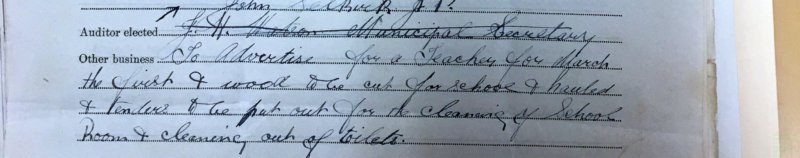 John Selkirk J.P.
Auditor elected J. H. Watson Municipal Secretary
Other business To Advertise for a Teacher for March
the first & wood to be cut for school & hauled
& tenders to be put out for the cleaning of School
Room & cleaning out of toilets.